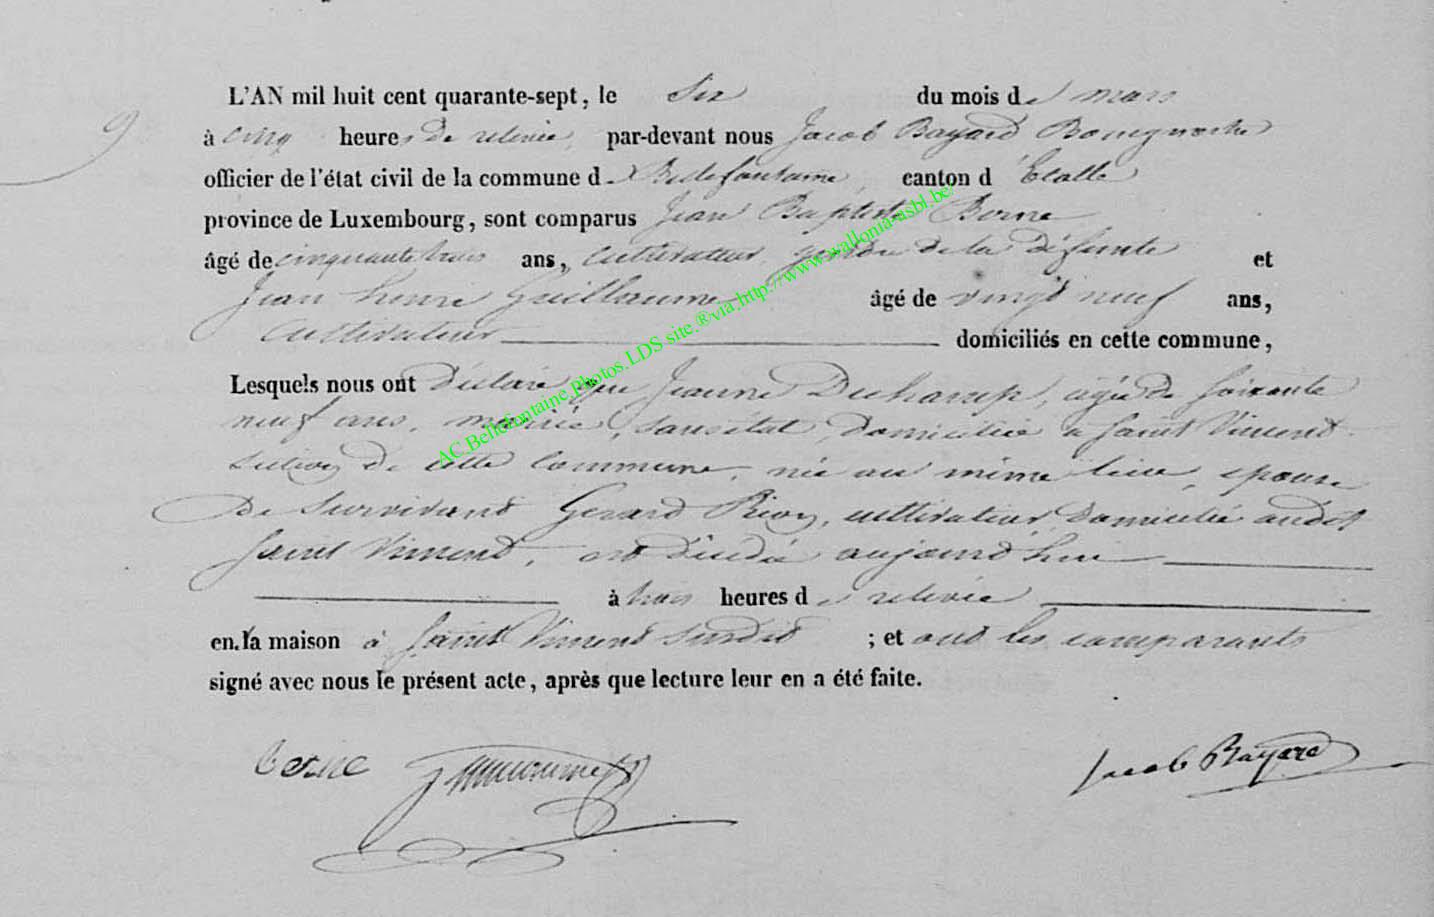 L'AN mil huit cent quarante-sept, le Six du mois de mars
9
à cinq heures de relevée, par-devant nous Jacob Bayard Bourgmestre
officier de l'état civil de la commune de Bellefontaine, canton d'Etalle
province de Luxembourg, sont comparus Jean Baptiste Borne
âgé de cinquante trois ans, cultivateur, gendre de la défunte et
Jean henri Guillaume âgé de vingt neuf ans,
cultivateur domiciliés en cette commune,
Lesquels nous ont déclaré que Jeanne Duchamp, agée de soixante
neuf ans, mariée, sans état domiciliée à Saint Vincent
section de cette commune, née au même lieu, epouse
de survivant Gerard Rion, cultivateur, domicilié audit
Saint Vincent, est décédée aujourd'hui
à trois heures de relevée
en la maison à Saint Vincent susdit ; et ont les comparants
signé avec nous le présent acte, après que lecture leur en a été faite.
Jacob Bayard
AC.Bellefontaine.Photos.LDS site.®via.http://www.wallonia-asbl.be/